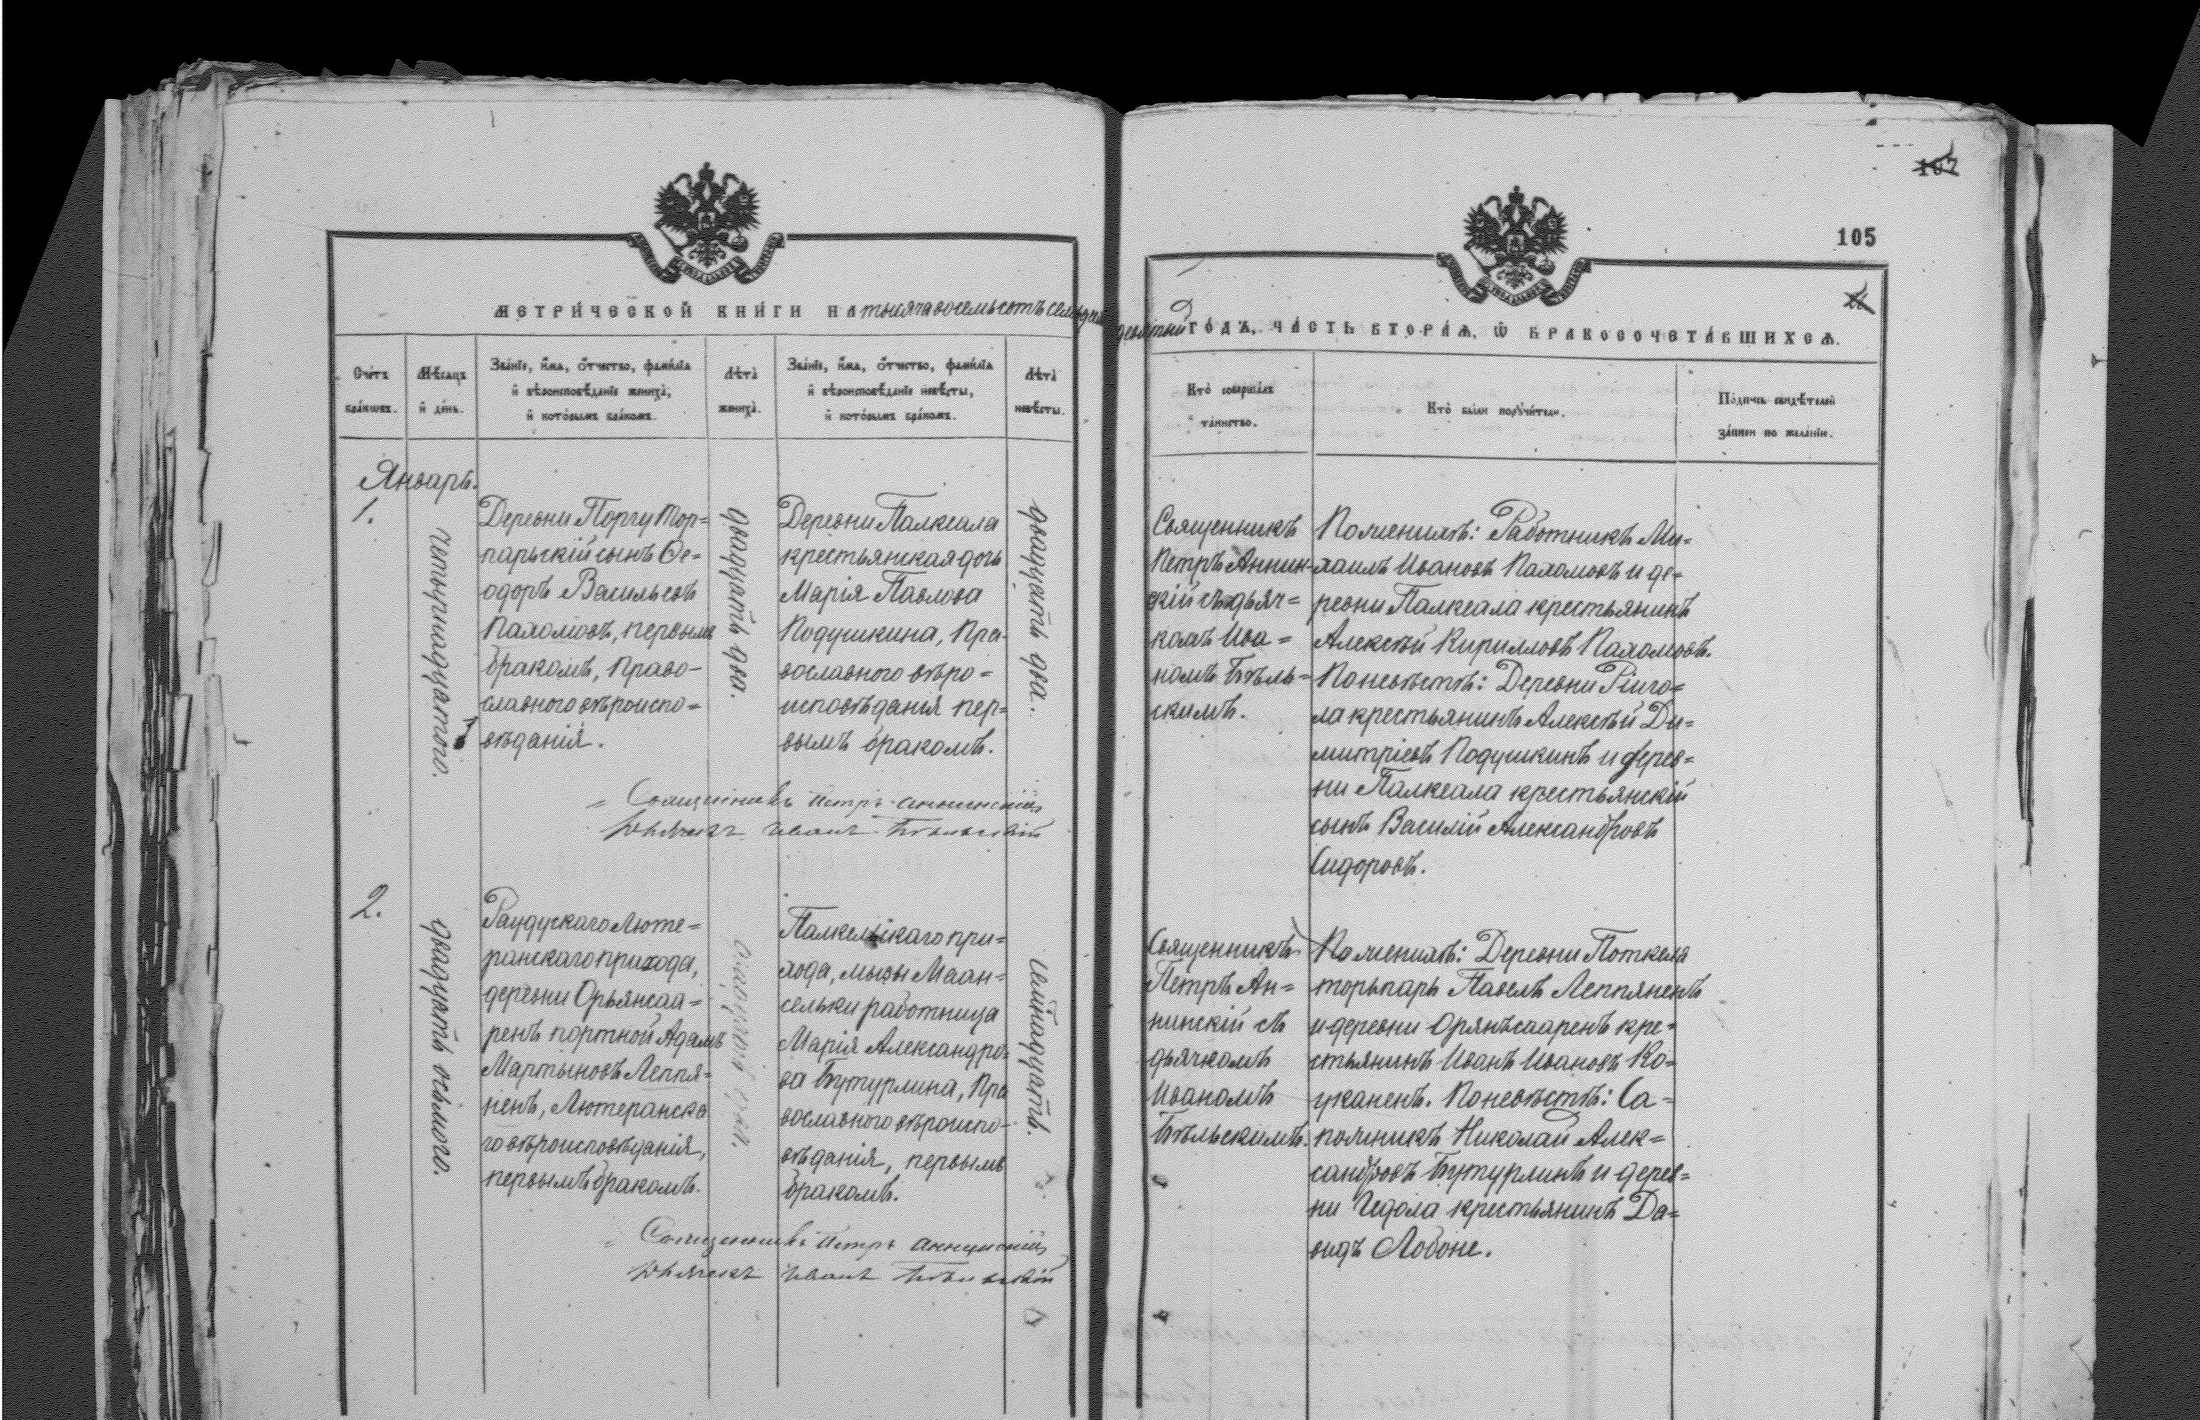 107
105
МЕТРИЧЕСКОЙ КНИГИ НА тысяча восемьсотъ семьдесятъ
девятый ГОДЪ, ЧАСТЬ ВТОРАЯ, Ѡ БРАКОСОЧЕТАВШИХСЯ.
Счетъ браковъ.
Мѣсяцъ и день.
Званіе, имя, отчество, фамилія
и вѣроисповѣданіе жениха,
и которымъ бракомъ.
Лѣта жениха.
Званіе, имя, отчество, фамилія
и вѣроисповѣданіе невѣсты,
и которымъ бракомъ.
Лѣта невѣсты.
Кто совершалъ
таинство.
Кто были поручители.
Подпись свидѣтелей
записи по желанію.
Январь.
1.
четырнадцатого.
Деревни Поргу Тор=
парьскій сынъ Ѳе=
одоръ Васильевъ
Пахомовъ, первымъ
бракомъ, право=
славного вѣроиспо=
вѣданія.
двадцать два.
Деревни Палкеала
крестьянская дочь
Марія Павлова
Подушкина, Пра=
вославного вѣро=
исповѣданія пер=
вымъ бракомъ.
двадцать два.
Священникъ
Петръ Аннин=
скій съ дьяч=
комъ Ива=
номъ Бѣль=
скимъ.
По женихѣ: Работникъ Ми=
хаилъ Ивановъ Пахомовъ и де=
ревни Палкеала крестьянинъ
Алексѣй Кирилловъ Пахомовъ.
По невѣстѣ: Деревни Рійго=
ла крестьянинъ Алексѣй Ди=
митріевъ Подушкинъ и дерев=
ни Палкеала крестьянскій
сынъ Василій Александровъ
Сидоровъ.
Священникъ Петръ Аннинскій
Дьячекъ Иванъ Бѣльскій
2.
двадцать осьмого.
Раудускаго Люте=
ранскаго прихода,
деревни Орьянсаа=
ренъ портной Адамъ
Мартыновъ Леппя=
ненъ, Лютеранска
го вѣроисповѣданія,
первымъ бракомъ.
Палкельскаго при=
хода, мызы Маан=
сельки работница
Марія Александро=
ва Бутурлина, Пра
вославного вѣроиспо=
вѣданія, первымъ
бракомъ.
семнадцать.
Священникъ
Петръ Ан=
нинскій съ
дьячкомъ
Иваномъ
Бѣльскимъ.
По женихѣ: Деревни Поткела
торьпарь Павелъ Леппяненъ
и деревни Орянъсааренъ кре=
стьянинъ Иванъ Ивановъ Ко=
уканенъ. По невѣстѣ: Са=
пожникъ Николай Алек=
сандровъ Бутурлинъ и дерев=
ни Чедола крестьянинъ Да=
видъ Лобоне.
Священникъ Петръ Аннинскій
Дьячекъ Иванъ Бѣльскій